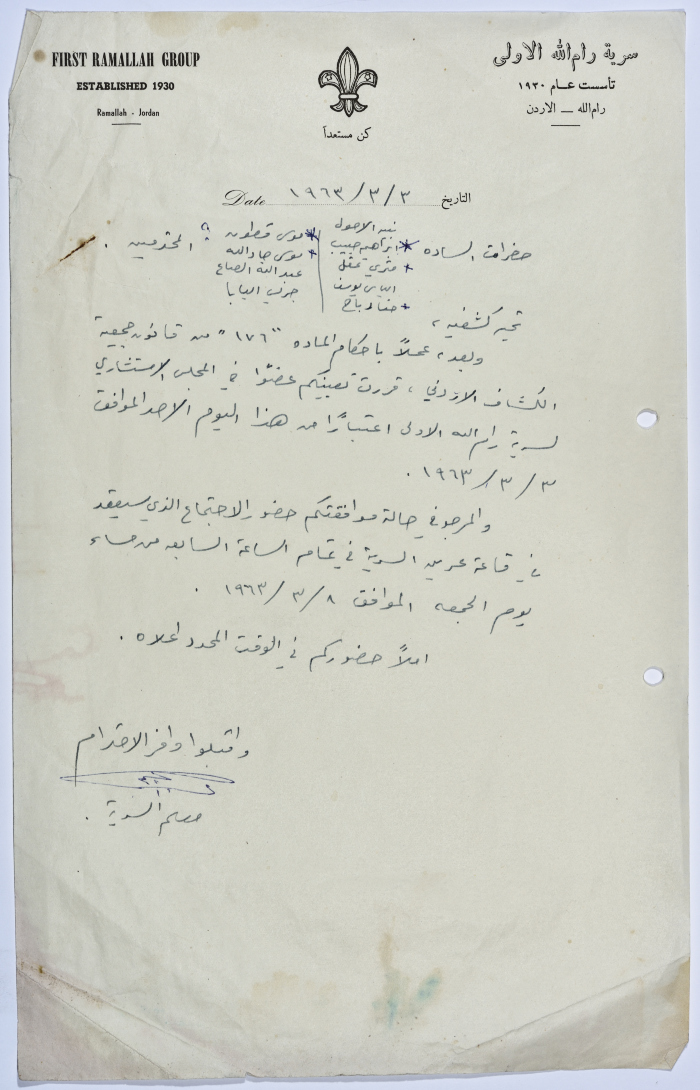 FIRST RAMALLAH GROUP
ESTABLISHED 1930
Ramallah - Jordan
سرية رام الله الاولى
تأسست عام ١٩٣٠
رام الله — الاردن
كن مستعداً
التاريخ ١٩٦٣/٣/٣ Date
حضرات الساده
ابراهيم حبيب
فخري عقل
الياس يوسف
حنا دباح
موسى قطون
موسى جادالله
عبد الله الصاع
جرس البابا
المحترمين .
تحيه كشفيه ،
وبعد ، عملاً باحكام الماده "١٧٦" من قانون جمعية
الكشاف الاردني ، قررت تعيينكم عضوًا في المجلس الاستشاري
لسرية رام الله الاولى اعتبارًا من هذا اليوم الاحد الموافق
١٩٦٣/٣/٣ .
والمرجو في حالة موافقتكم حضور الاجتماع الذي سيعقد
في قاعة عرين السرية في تمام الساعة السابعه من مساء
يوم الجمعه الموافق ١٩٦٣/٣/٨ .
املاً حضوركم في الوقت المحدد اعلاه .
واقبلوا وافر الاحترام
معلم السرية .